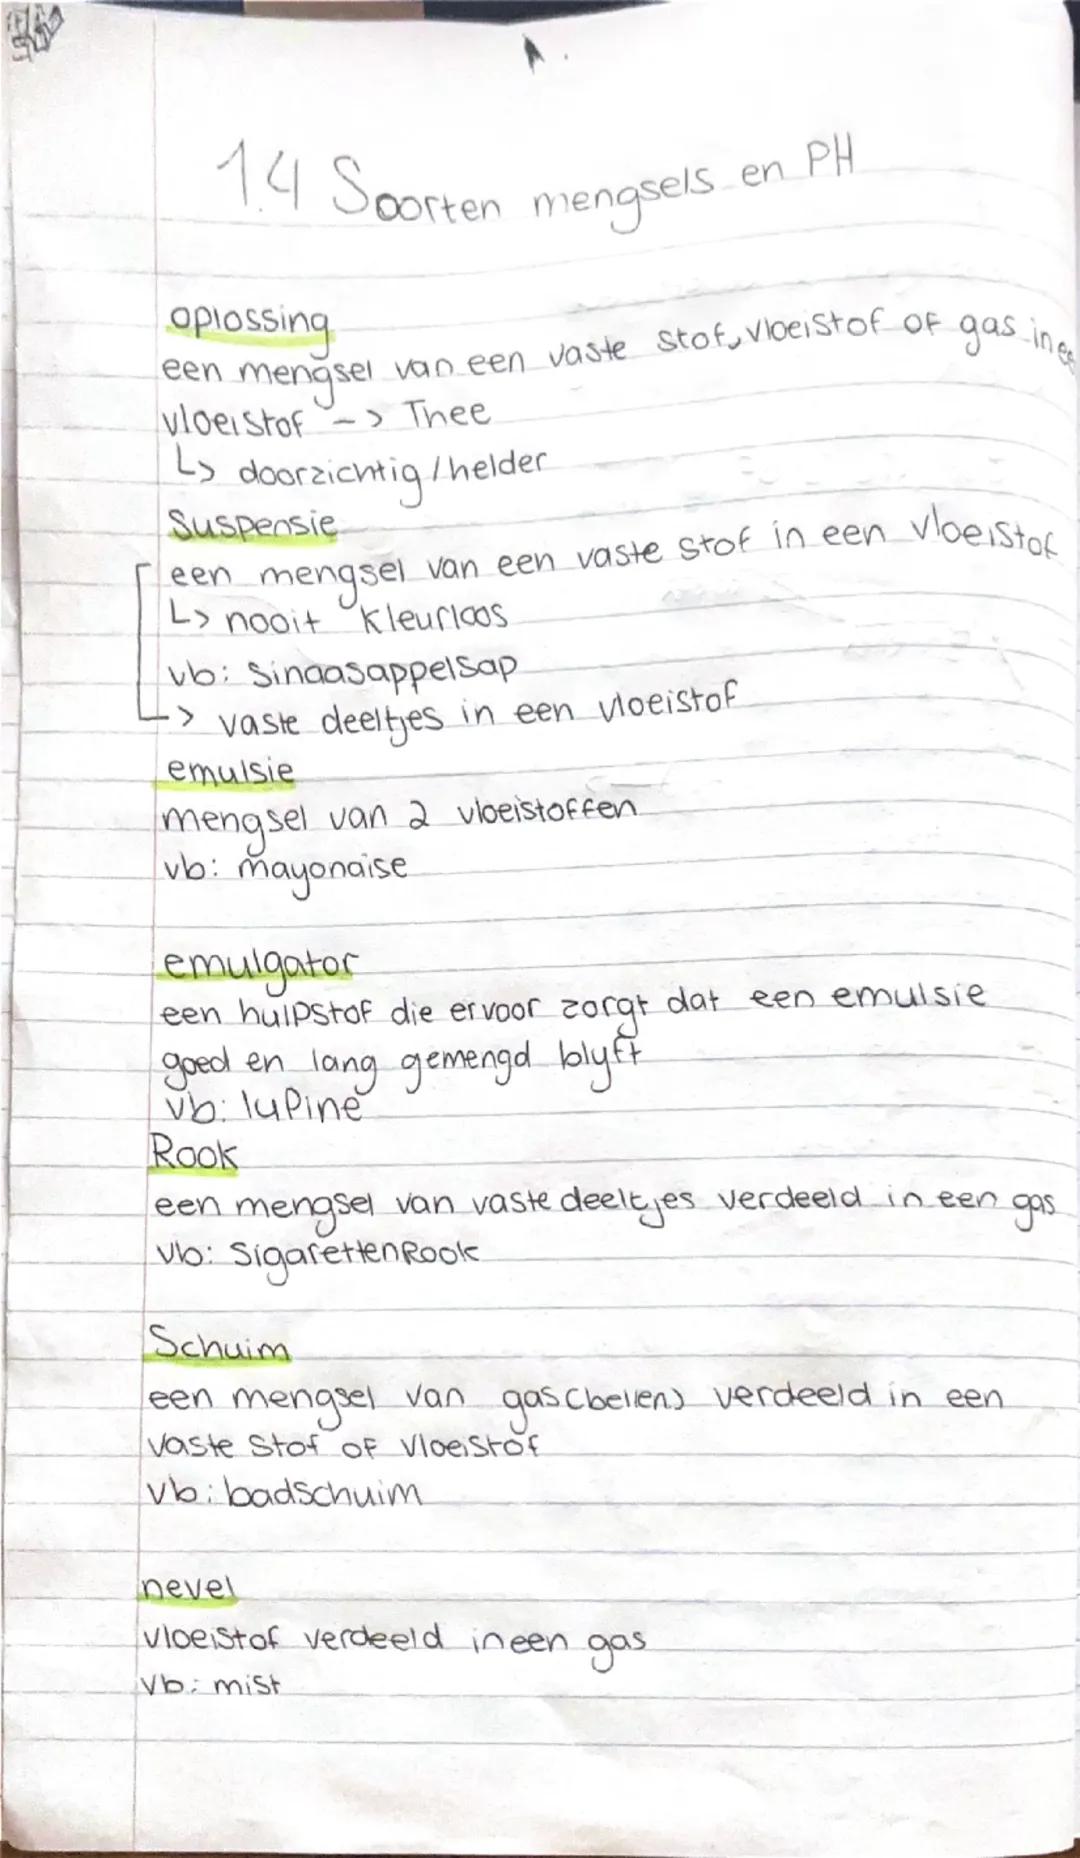 1.4 Soorten mengsels en PH
oplossing
een mengsel van een vaste stof, vloeistof of gas in
vloeistof -> Thee
↳ doorzichtig / helder
Suspensie
een mengsel van een vaste stof in een vloeistof
↳ nooit kleurloos
vb: Sinaasappelsap
-> vaste deeltjes in een vloeistof
emulsie
mengsel van 2 vloeistoffen
vb: mayonaise
emulgator
een hulpstof die ervoor zorgt dat een emulsie
goed en lang gemengd blyft
vb: lupine
Rook
een mengsel van vaste deeltjes verdeeld in een gas
vb: SigarettenRook
Schuim
een mengsel van gas (bellen) verdeeld in een
vaste Stof of vloeistof
vb: badschuim
nevel
vloeistof verdeeld in een gas
vb: mist